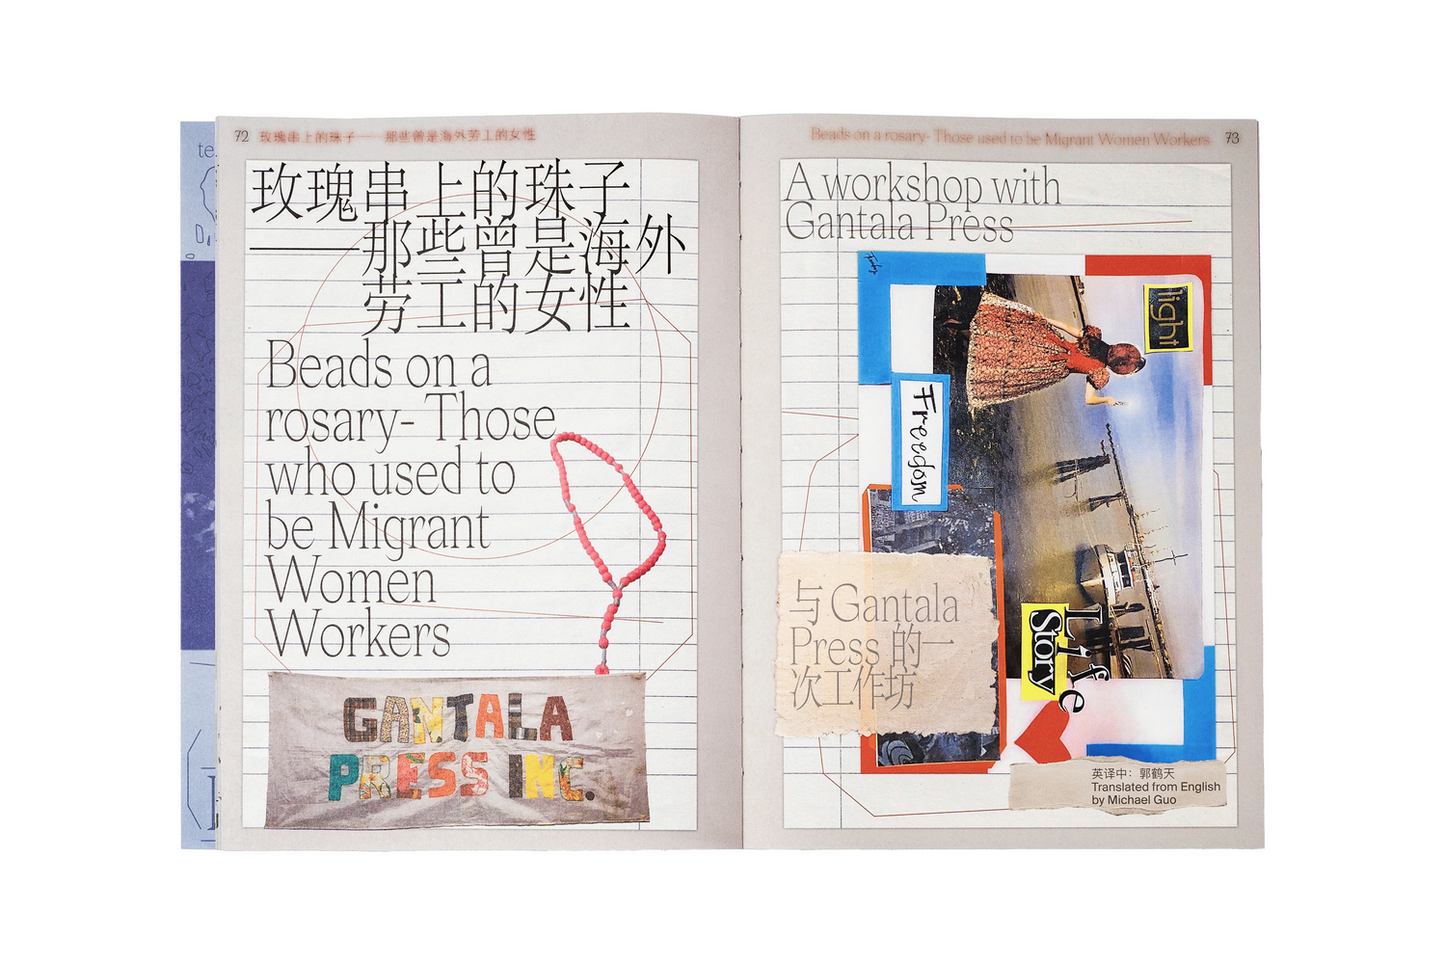 te.
72 玫瑰串上的珠子——那些曾是海外劳工的女性
玫瑰串上的珠子
——那些曾是海外
劳工的女性
Beads on a
rosary- Those
who used to
be Migrant
Women
Workers
GANTALA
PRESS INC.
Beads on a rosary- Those used to be Migrant Women Workers 73
A workshop with
Gantala Press
light
Freedom
与 Gantala
Press 的一
次工作坊
Life
Story
英译中：郭鹤天
Translated from English
by Michael Guo